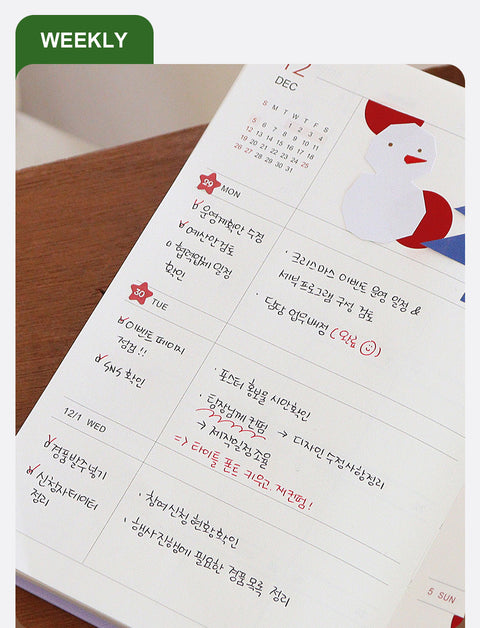 WEEKLY
12
DEC
S M T W T F S
1 2 3 4
5 6 7 8 9 10 11
12 13 14 15 16 17 18
19 20 21 22 23 24 25
26 27 28 29 30 31
29 MON
운영계획안 수정
예산안검토
협력업체 일정
확인
· 크리스마스 이벤트 운영 일정 &
세부 프로그램 구성 검토
· 담당 업무배정 (완료)
30 TUE
이벤트 페이지
점검!!
SNS 확인
· 포스터 홍보물 시안확인
· 팀장님께 컨펌 → 디자인 수정사항정리
→ 제작일정 조율
=> 타이틀 폰트 키우고, 재컨펌!
12/1 WED
경품발주넣기
신청자데이터
정리
· 참여신청 현황확인
· 행사진행에 필요한 경품목록 정리
5 SUN